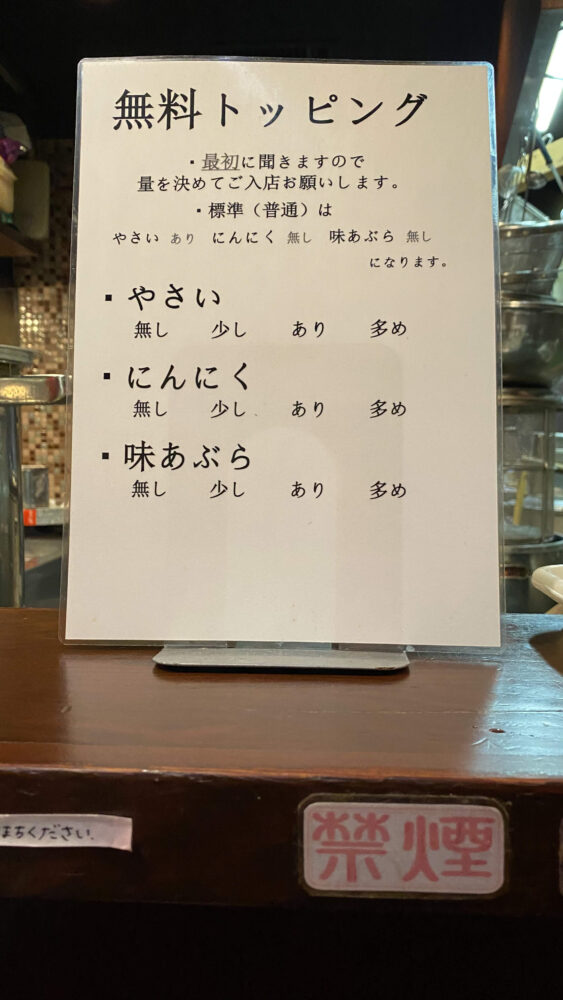 無料トッピング
・最初に聞きますので
量を決めてご入店お願いします。
・標準（普通）は
やさい あり にんにく 無し 味あぶら 無し
になります。
▪やさい
無し 少し あり 多め
▪にんにく
無し 少し あり 多め
▪味あぶら
無し 少し あり 多め
まちください。
禁煙